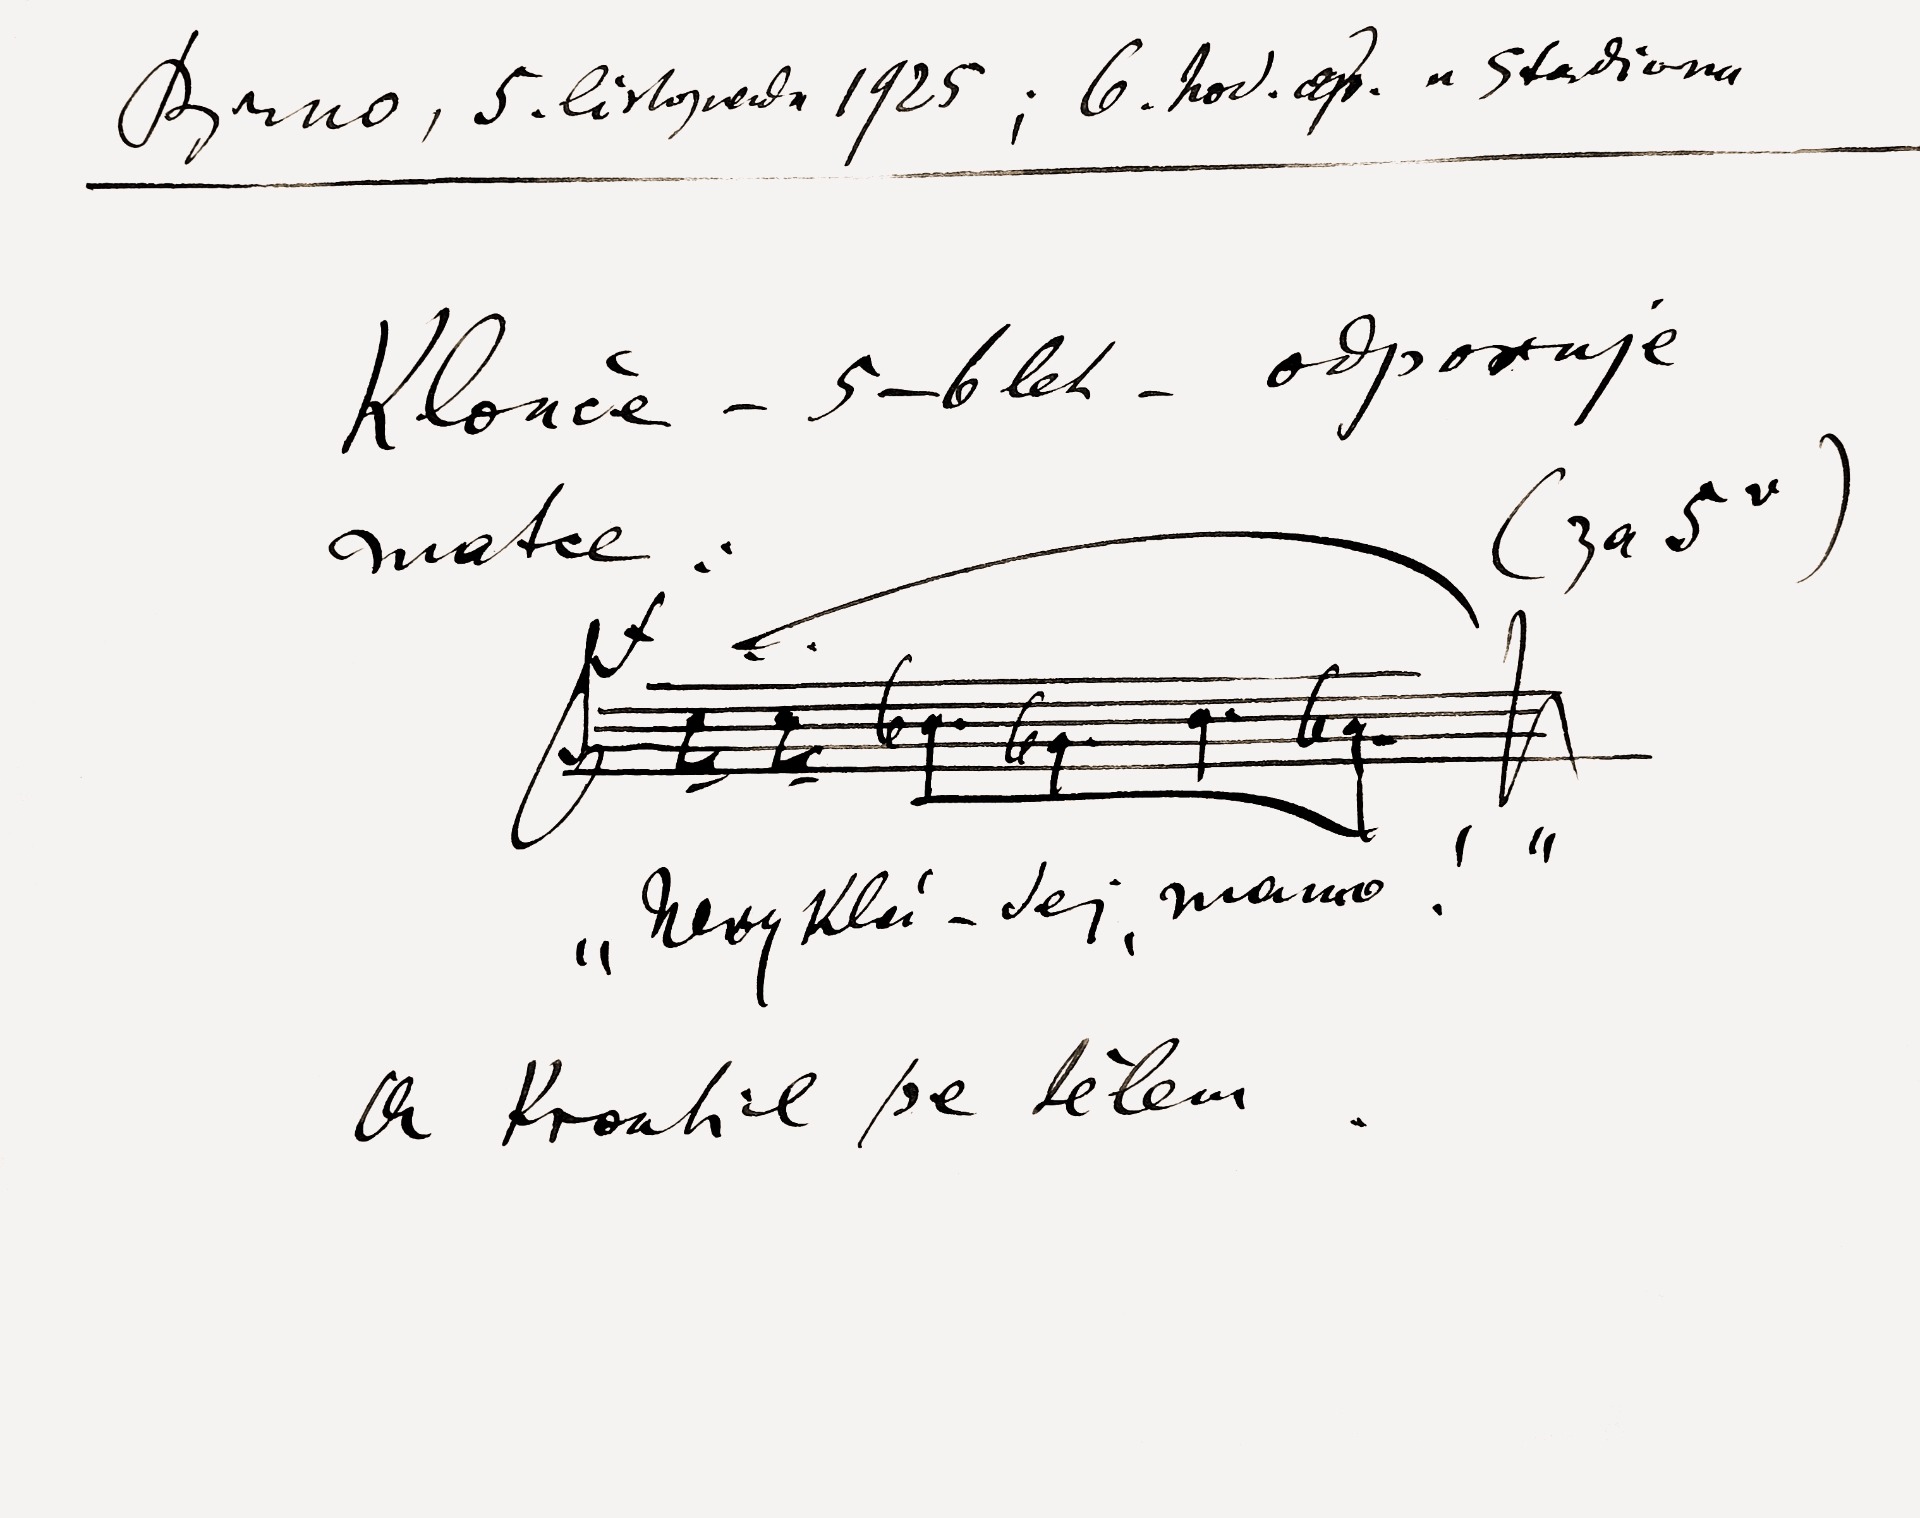 Brno, 5. listopadu 1925; 6. hod. odp. u Stadionu
Klouče – 5–6 let – odporuje
matce:
(za 5ᵛ)
„Nevyklá-dej, mamo!"
a kroutil se tělem.